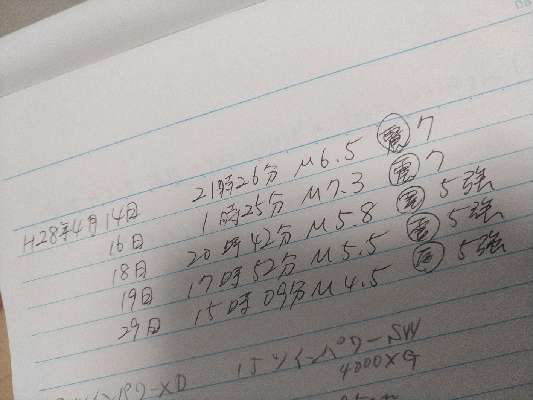 H28年4月14日 21時26分 M6.5 ㊩震 7
16日 1時25分 M7.3 震 7
18日 20時42分 M5.8 震 5強
19日 17時52分 M5.5 震 5強
29日 15時09分 M4.5 震 5強
15ツインパワーSW
4000XG